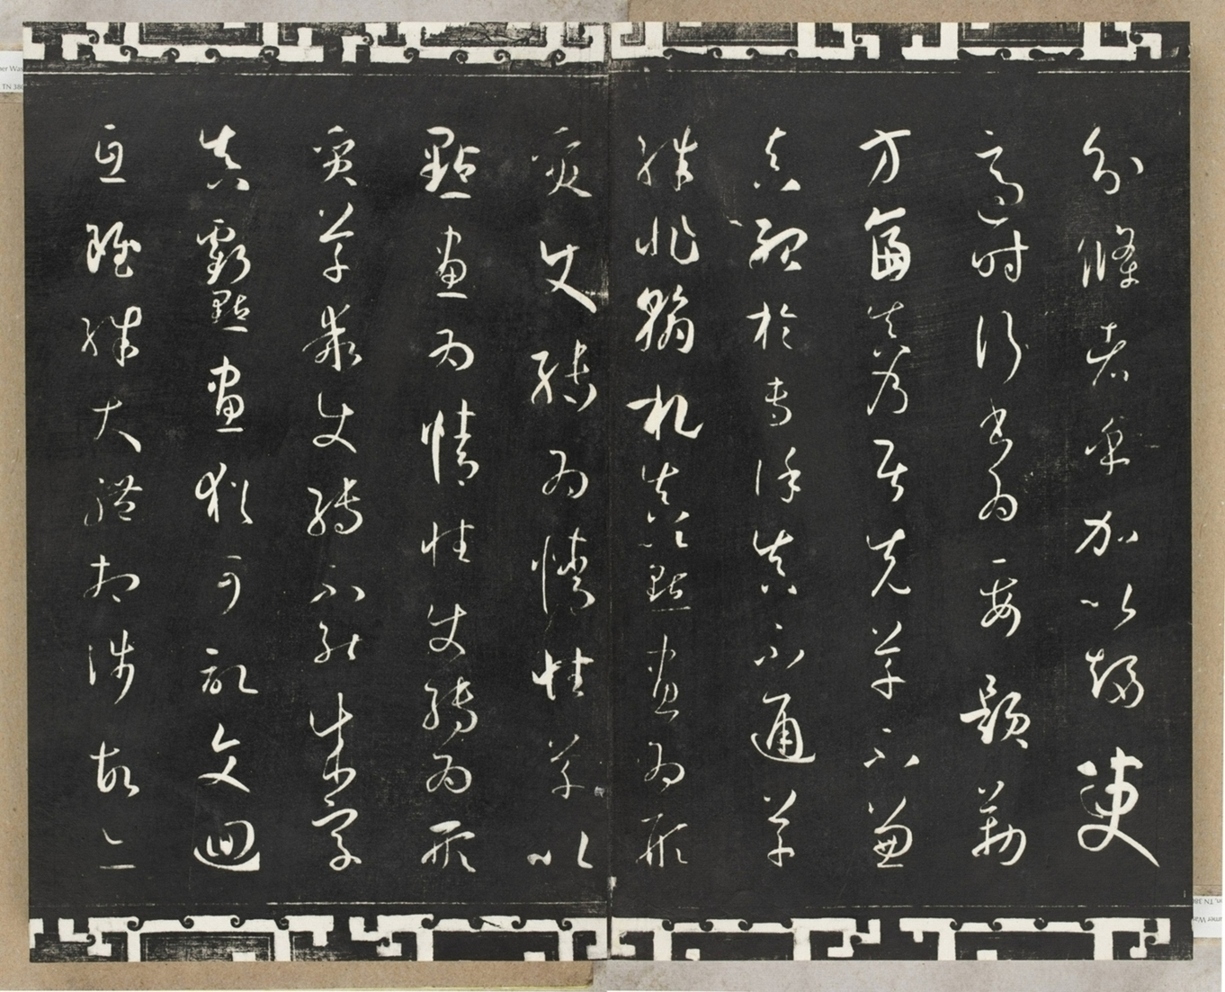 分條者乎加以趨變
適時行書為要題勒
方幅真乃居先草不兼
真殆於專謹真不通草
殊非翰札真以點畫為形
質使轉為情性草以
點畫為情性使轉為形
質草乖使轉不能成字
真虧點畫猶可記文迴
互雖殊大體相涉故亦